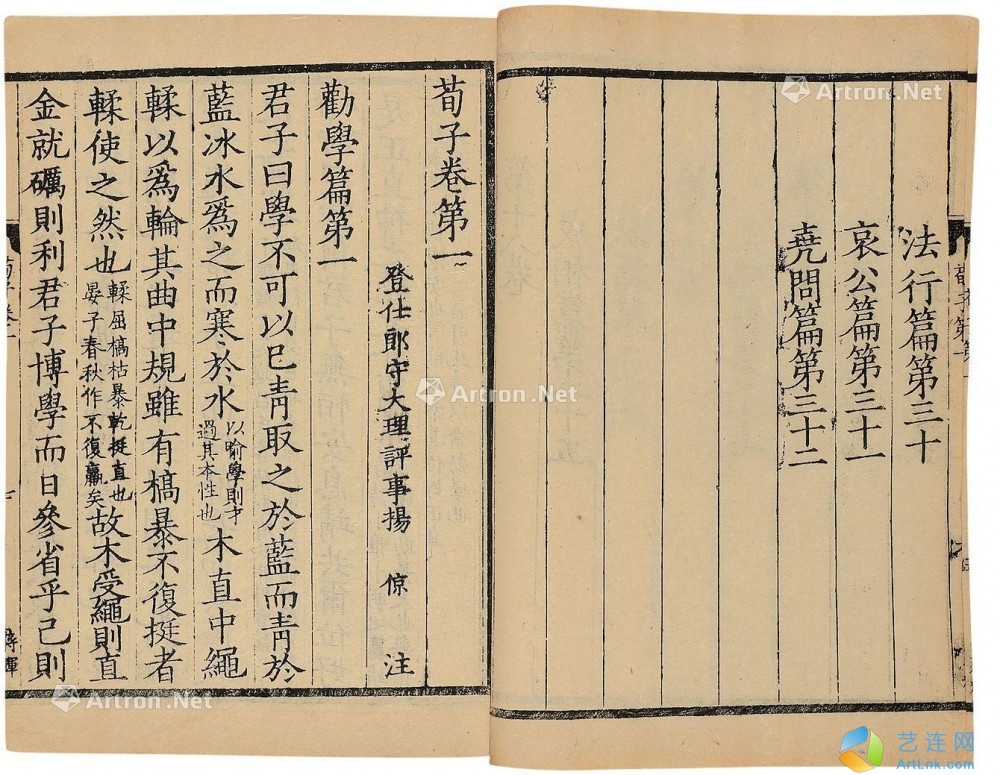 法行篇第三十
哀公篇第三十一
堯問篇第三十二
荀子卷第一
登仕郎守大理評事揚 倞 注
勸學篇第一
君子曰學不可以已青取之於藍而青於
藍冰水爲之而寒於水以喻學則才過其本性也木直中繩
輮以爲輪其曲中規雖有槁暴不復挺者
輮使之然也輮屈槁枯暴乾挺直也晏子春秋作不復羸矣故木受繩則直
金就礪則利君子博學而日參省乎己則
Artron.Net
Artron.Net
Artron.Net
艺连网
ArtLnk.com